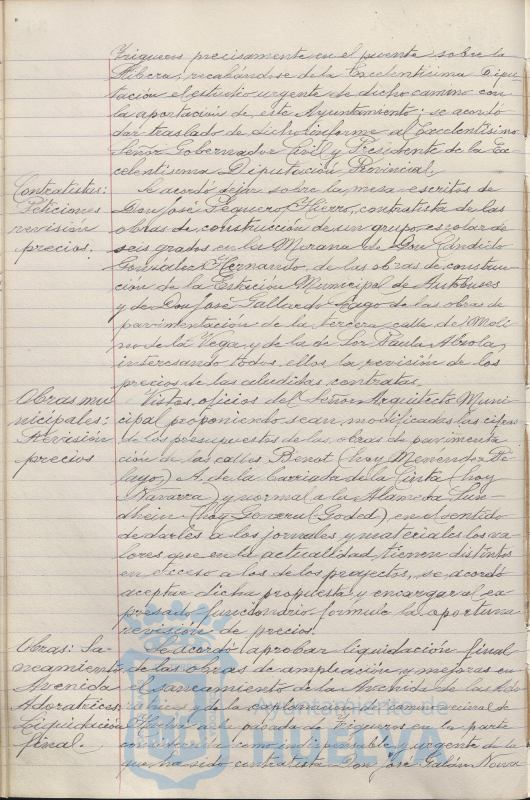 Trigueros precisamente en el puente sobre la
Ribera; recabándose de la Excelentísima Dipu-
tación el estudio urgente de dicho camino con
la aportación de este Ayuntamiento; se acordó
dar traslado de dicho informe al Excelentísimo
Señor Gobernador Civil y Presidente de la Ex-
celentísima Diputación Provincial.
Contratistas:
Peticiones
revisión
precios.
Se acordó dejar sobre la mesa escritos de
Don José Peguero Hierro, contratista de las
obras de construcción de un grupo escolar de
seis grados en la Morana de Don Cándido
González Hernando, de las obras de construc-
ción de la Estación Municipal de Autobuses
y de Don José Gallardo Lago de las obras de
pavimentación de la tercera calle de Moli-
no de la Vega, y de la de Sor Paula Alzola,
interesando todos ellos la revisión de los
precios de las aludidas contratas.
Obras mu
nicipales:
Revisión
precios
Vistos oficios del Señor Arquitecto Muni-
cipal proponiendo sean modificadas las cifras
de los presupuestos de las obras de pavimenta-
ción de las calles Benot (hoy Menéndez Pe-
layo) A. de la Barriada de la Cinta (hoy
Navarra) y normal a la Alameda Sun-
dheim (hoy General Goded), en el sentido
de darles a los jornales y materiales los va-
lores que en la actualidad tienen distintos
en exceso a los de los proyectos, se acordó
aceptar dicha propuesta y encargar al ex-
presado funcionario formule la oportuna
revisión de precios.
Obras: Sa-
neamiento
Avenida
Adoratrices
Liquidación
final.
Se acordó aprobar liquidación final
de las obras de ampliación y mejoras en
el saneamiento de la Avenida de las Ado-
ratrices y de la explanación camino vecinal de
Huelva a la parada de Trigueros en la parte
considerada como indispensable y urgente de la
que ha sido contratista Don José Galán Nova
Ayuntamiento de
HUELVA